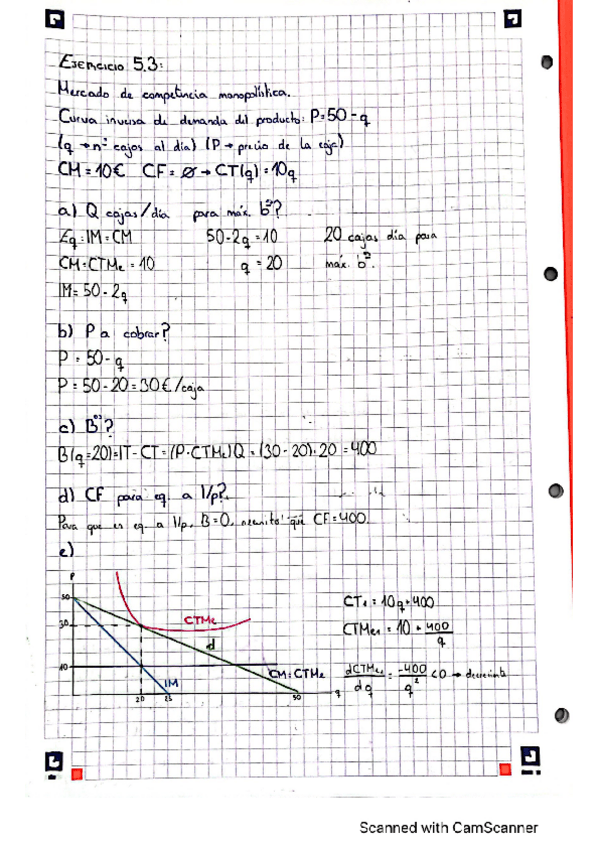 Ejercicio 5.3:
Mercado de competencia monopolística.
Curva inversa de demanda del producto: P=50-q
(q → nº cajas al día) (P → precio de la caja)
CM = 10€ CF = Ø → CT(q) = 10q
a) Q cajas/día para máx. bº?
Eq: IM = CM 50-2q = 10 20 cajas día para
CM = CTMe = 10 q = 20 máx. bº.
IM = 50-2q
b) P a cobrar?
P = 50-q
P = 50-20 = 30€/caja
c) Bºs?
B(q=20) = IT - CT = (P-CTMe)Q = (30-20)·20 = 400
d) CF para eq. a l/p?
Para que es eq. a l/p, B=0, necesito que CF=400.
e)
P
50
30
10
CTMe
d
CM=CTMe
IM
20 25 50 q
CT₁ = 10q+400
CTMe₁ = 10 + 400/q
dCTMe₁/dq = -400/q² <0 → decreciente
Scanned with CamScanner